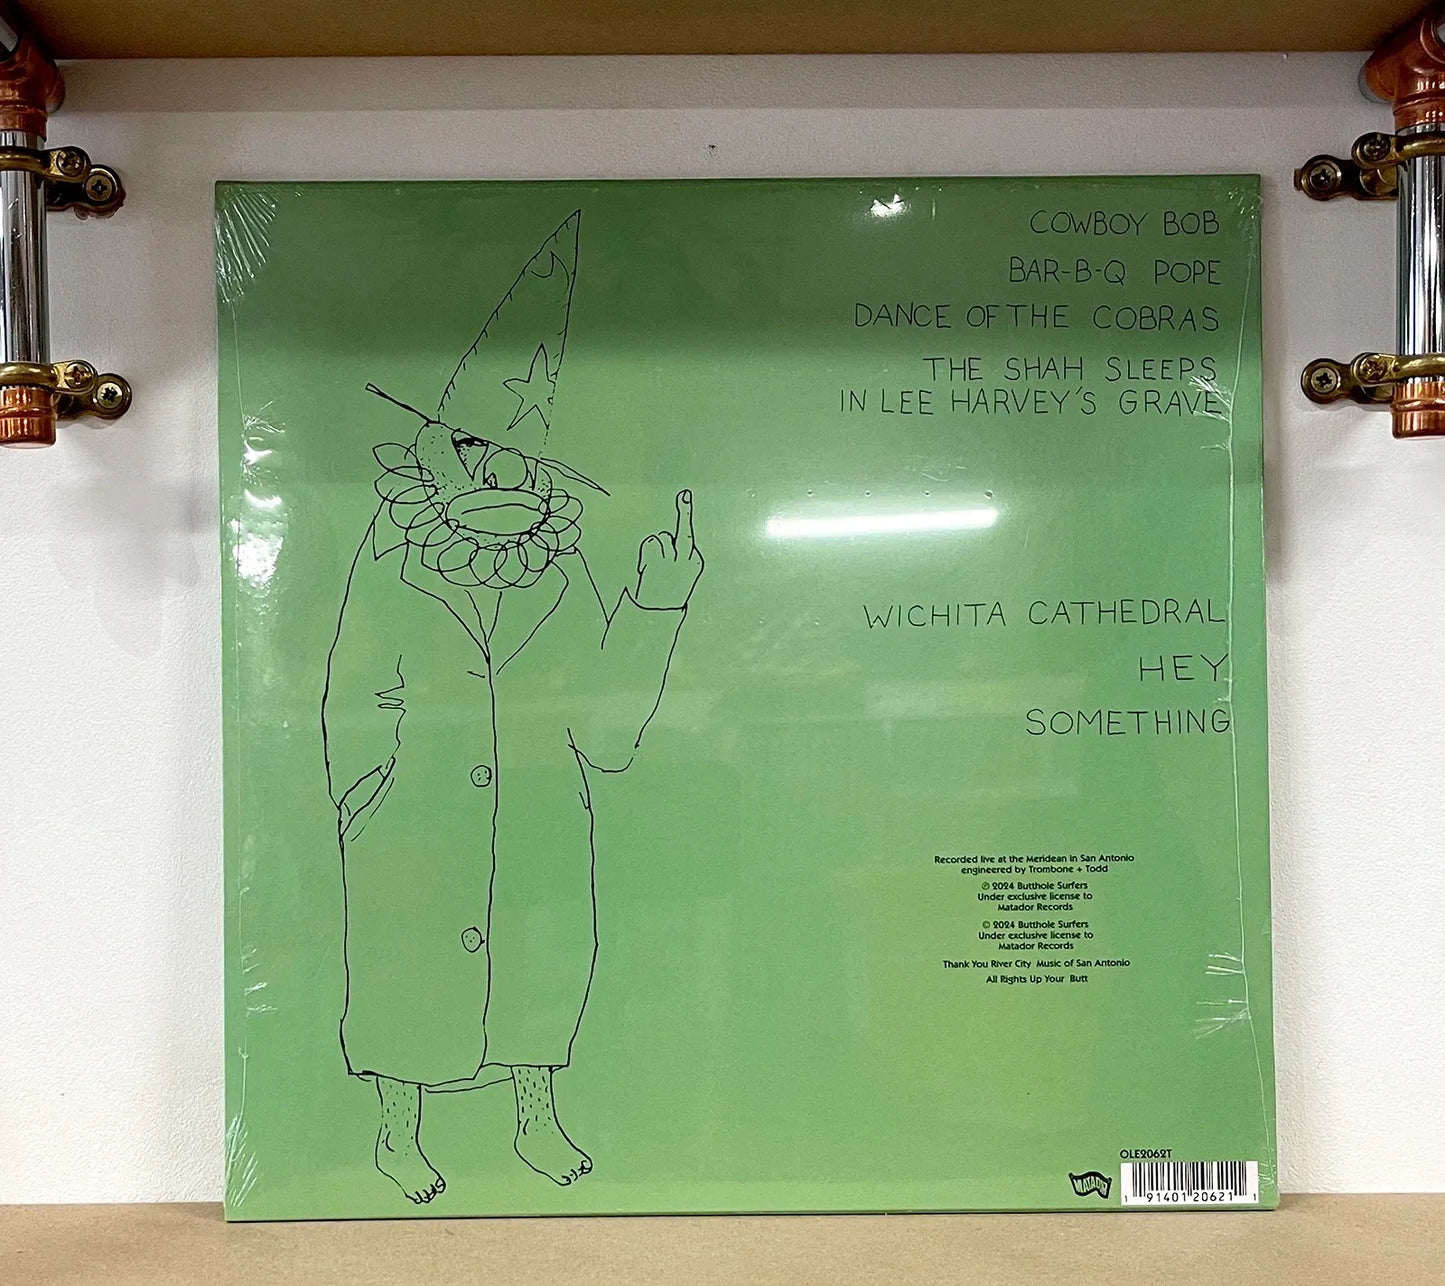 COWBOY BOB
BAR-B-Q POPE
DANCE OF THE COBRAS
THE SHAH SLEEPS
IN LEE HARVEY'S GRAVE
WICHITA CATHEDRAL
HEY
SOMETHING
Recorded live at the Meridean in San Antonio
engineered by Trombone + Todd
℗ 2024 Butthole Surfers
Under exclusive license to
Matador Records
© 2024 Butthole Surfers
Under exclusive license to
Matador Records
Thank You River City Music of San Antonio
All Rights Up Your Butt
OLE2062T
MATADOR
1 91401 20621 1